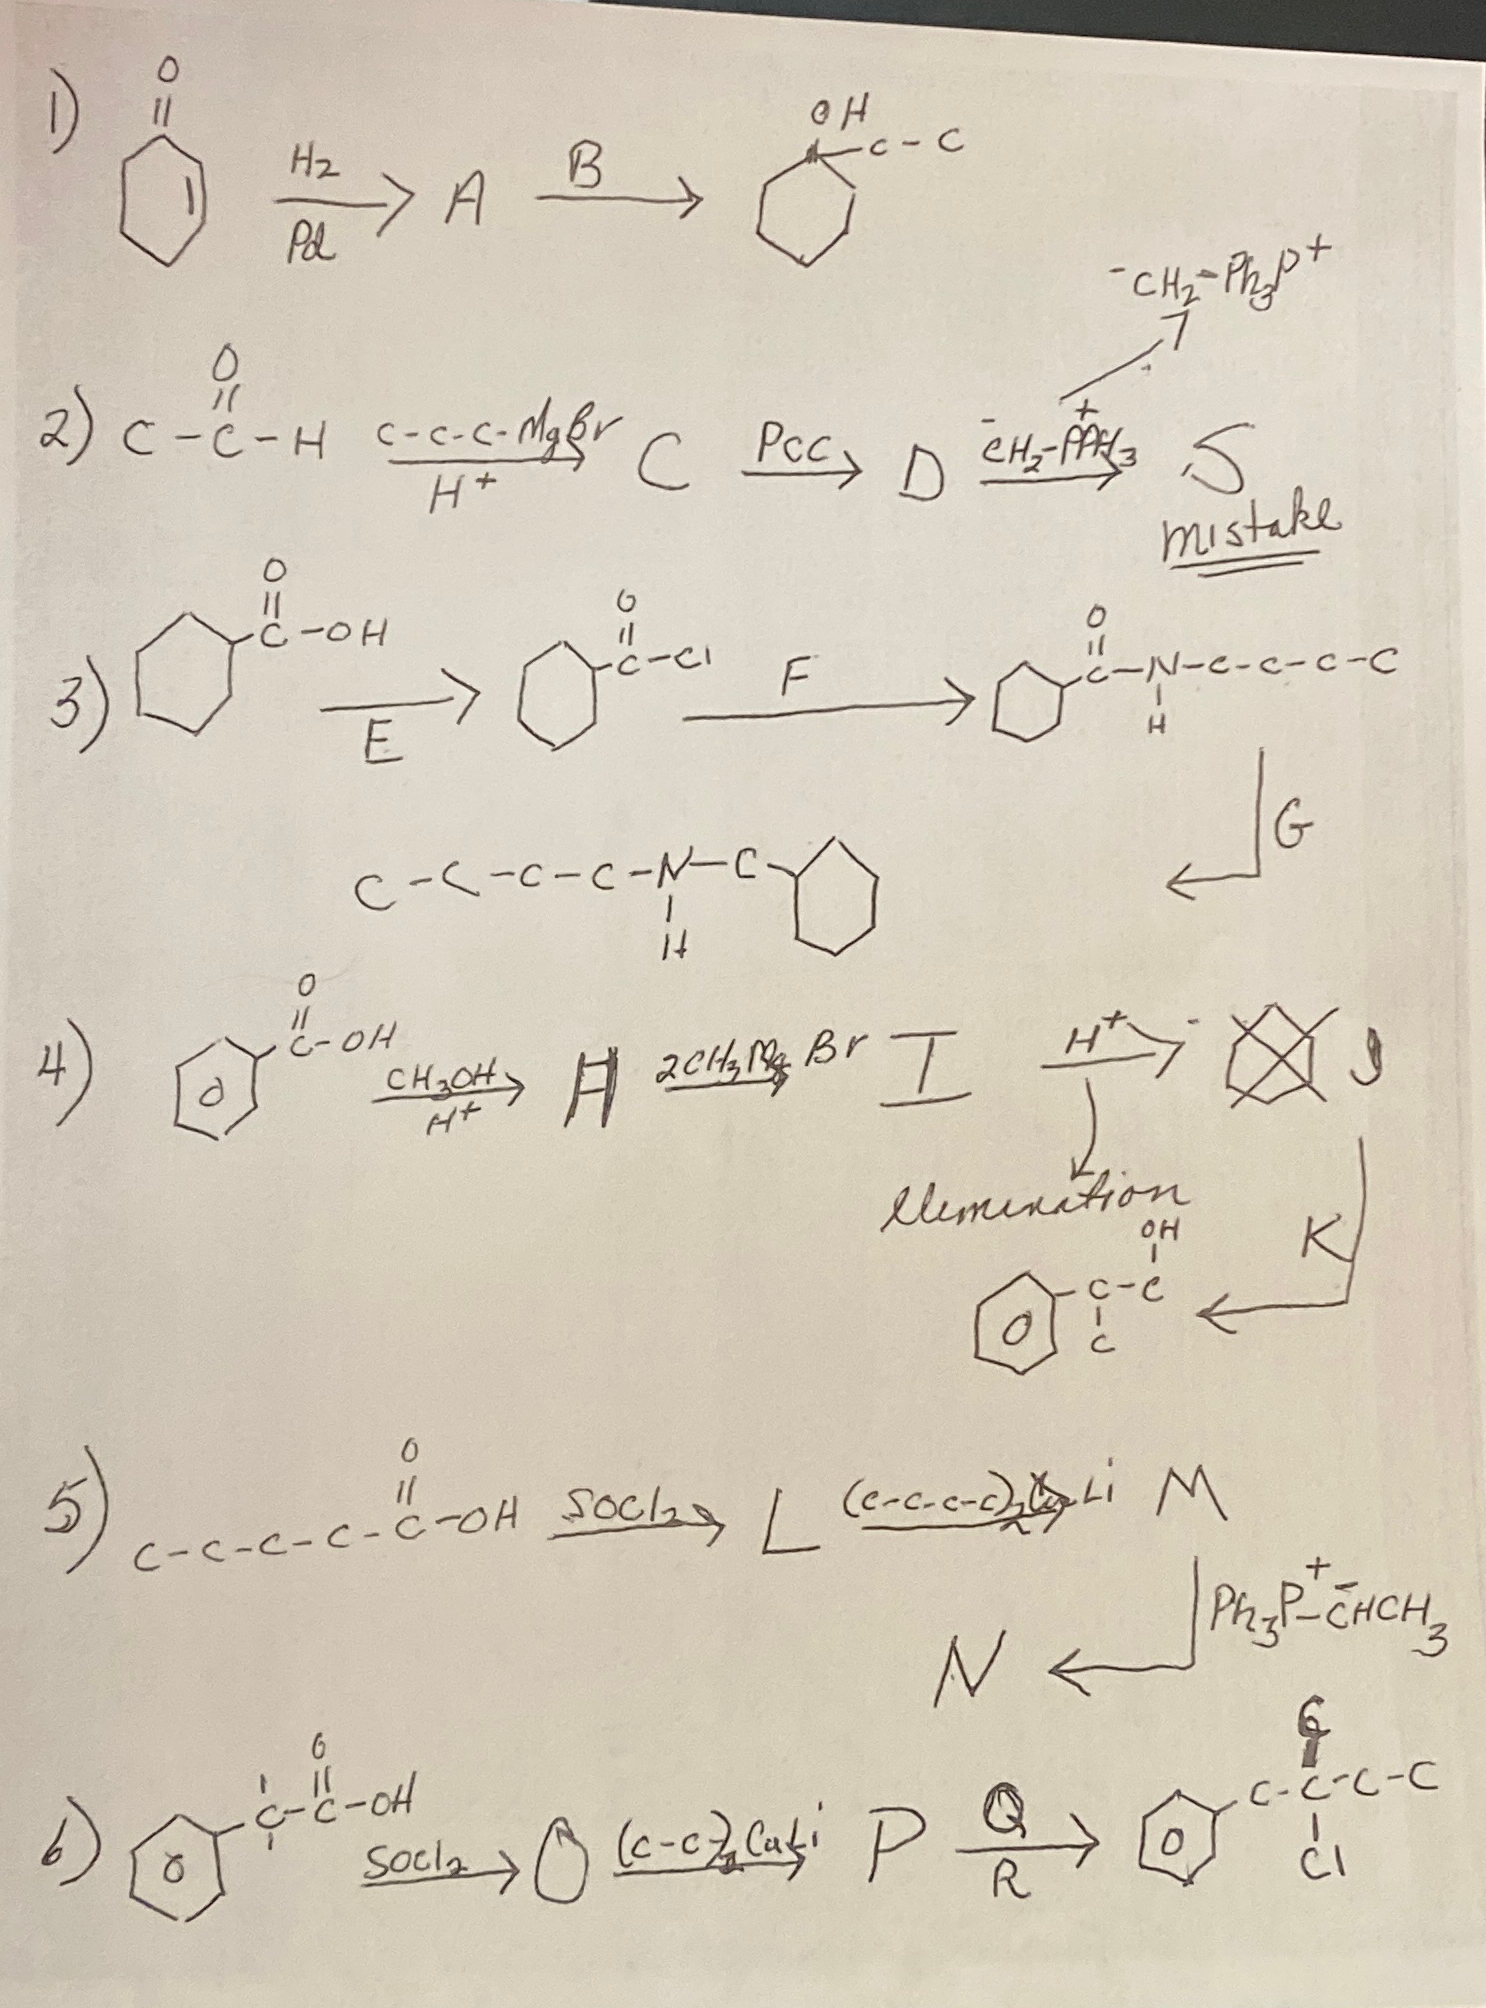 1) O || H2 Pd A B OH C-C
-CH2-Ph3P+
2) C-C-H O || C-C-C-MgBr H+ C PCC D -CH2-PPh3 + S
mistake
3) O || C-OH E O || C-Cl F O || C-N-C-C-C-C H
G
C-C-C-C-N-C H
4) O || C-OH CH3OH H+ H 2CH3MgBr I H+ J
Elemenation
OH C-C C K
5) O || C-C-C-C-C-OH SOCl2 L (C-C-C-C)2CuLi M
Ph3P+-C̄HCH3
N
6) C-C-OH O || SOCl2 O (C-C-)2CuLi P Q R C-C-C-C C Cl